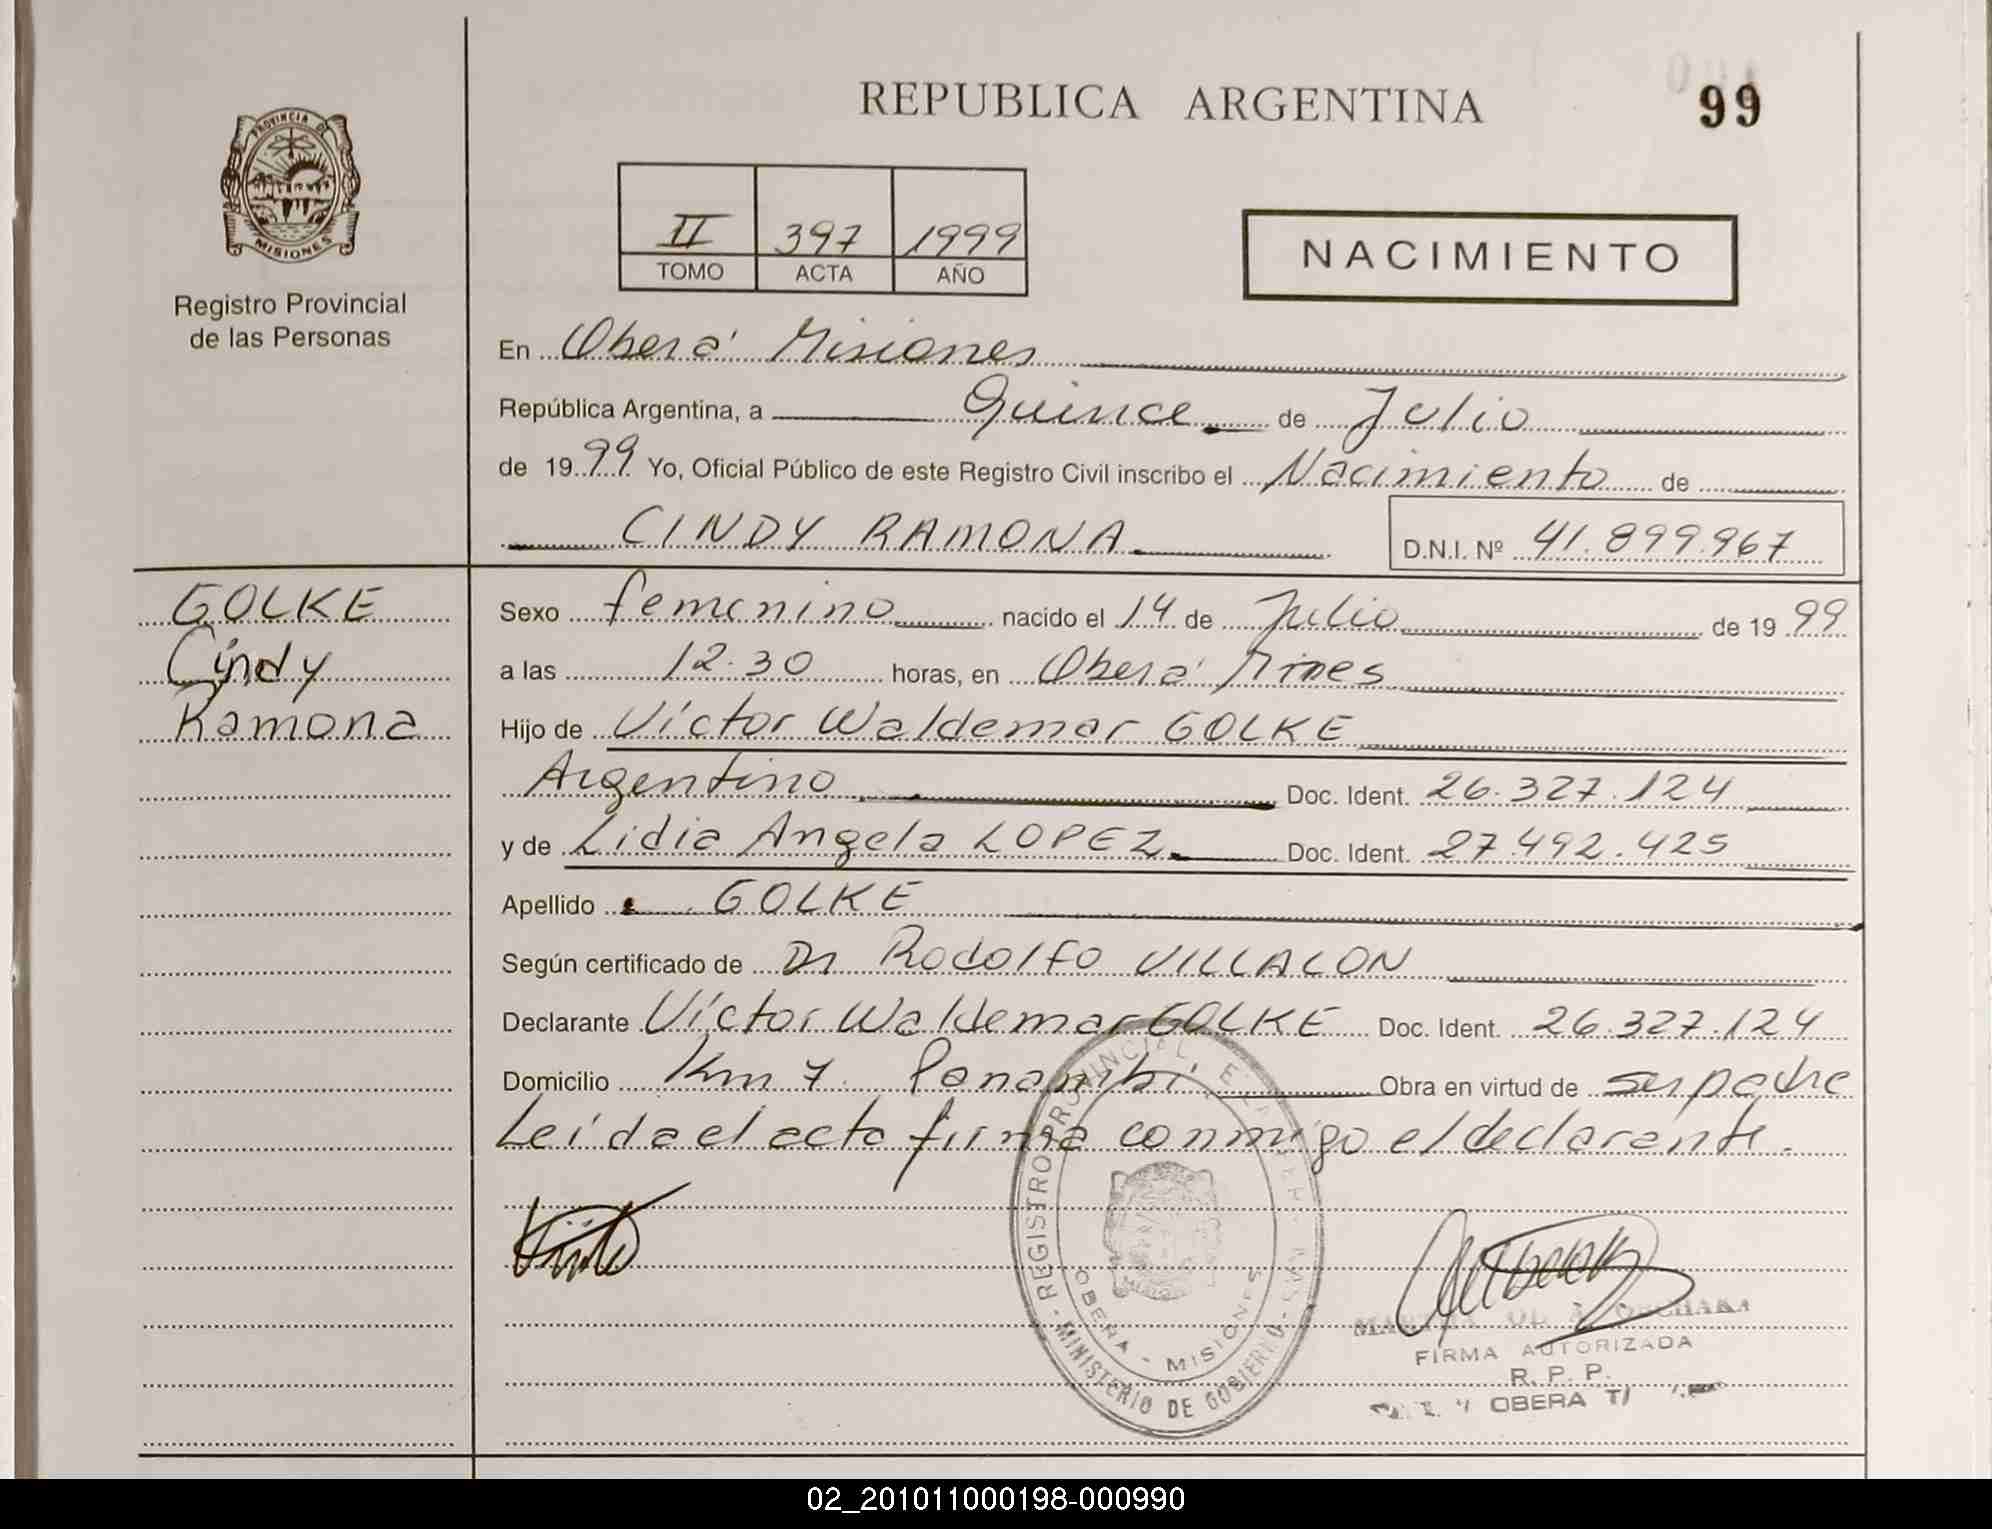 REPUBLICA ARGENTINA
99
PROVINCIA DE
MISIONES
Registro Provincial
de las Personas
II 397 1999
TOMO ACTA AÑO
NACIMIENTO
En Oberá Misiones
República Argentina, a Quince de Julio
de 1999 Yo, Oficial Público de este Registro Civil inscribo el Nacimiento de
CINDY RAMONA
D.N.I. Nº 41.899.967
GOLKE
Cindy
Ramona
Sexo femenino nacido el 14 de Julio de 1999
a las 12.30 horas, en Oberá Mnes
Hijo de Víctor Waldemar GOLKE
Argentino Doc. Ident. 26.327.124
y de Lidia Angela LOPEZ Doc. Ident. 27.492.425
Apellido GOLKE
Según certificado de Dr Rodolfo VILLALON
Declarante Víctor Waldemar GOLKE Doc. Ident. 26.327.124
Domicilio Km 7 Panambí Obra en virtud de ser padre
Leída el acta firma conmigo el declarante.
REGISTRO PROVINCIAL DE LAS PERSONAS
OBERA - MISIONES
MINISTERIO DE GOBIERNO
FIRMA AUTORIZADA
R. P. P.
OBERA
02_201011000198-000990